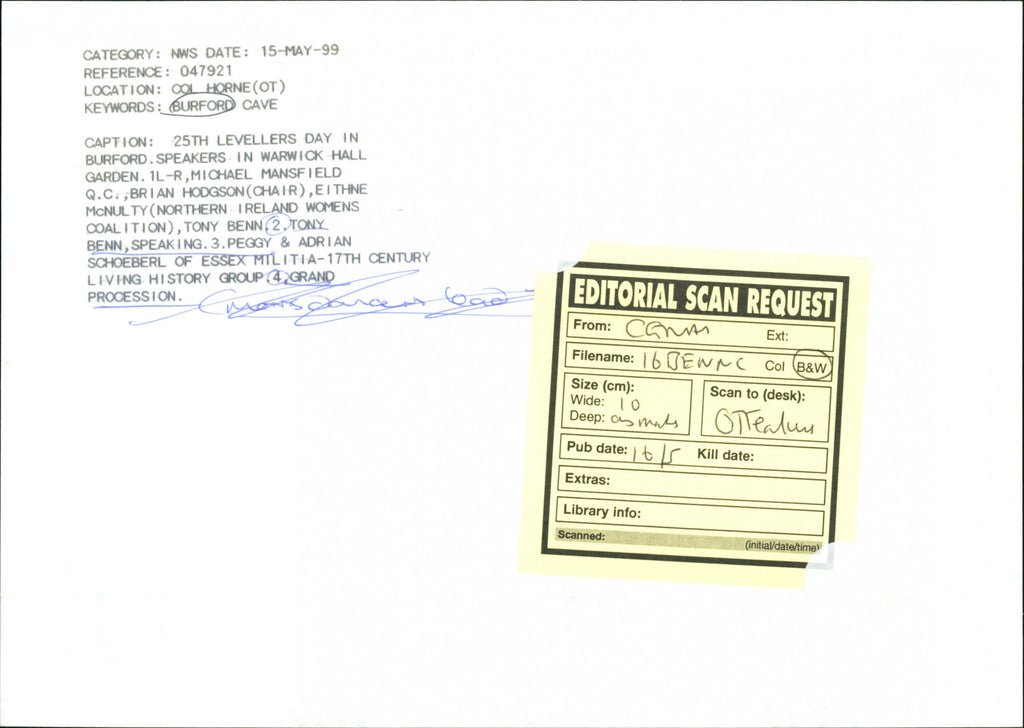 CATEGORY: NWS DATE: 15-MAY-99
REFERENCE: 047921
LOCATION: COL HORNE(OT)
KEYWORDS: BURFORD CAVE
CAPTION: 25TH LEVELLERS DAY IN
BURFORD.SPEAKERS IN WARWICK HALL
GARDEN.1L-R,MICHAEL MANSFIELD
Q.C.,BRIAN HODGSON(CHAIR),EITHNE
McNULTY(NORTHERN IRELAND WOMENS
COALITION),TONY BENN.2.TONY
BENN,SPEAKING.3.PEGGY & ADRIAN
SCHOEBERL OF ESSEX MILITIA-17TH CENTURY
LIVING HISTORY GROUP.4.GRAND
PROCESSION.
EDITORIAL SCAN REQUEST
From: Ext:
Filename: 16BENNC Col B&W
Size (cm):
Wide: 10
Deep: as marks
Scan to (desk):
Pub date: 16/5 Kill date:
Extras:
Library info:
Scanned: (initial/date/time)